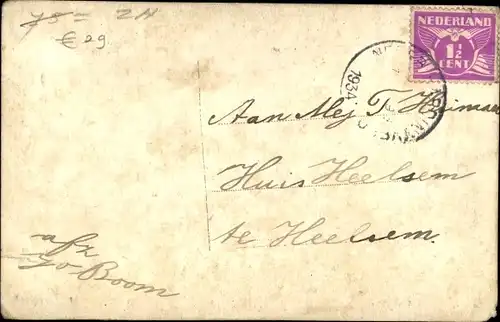 75 = 2H
€ 29
NEDERLAND
1½
CENT
1934
Aan Mej T.
Huis Heelsem
te Heelsem.
afz
Jo Boom